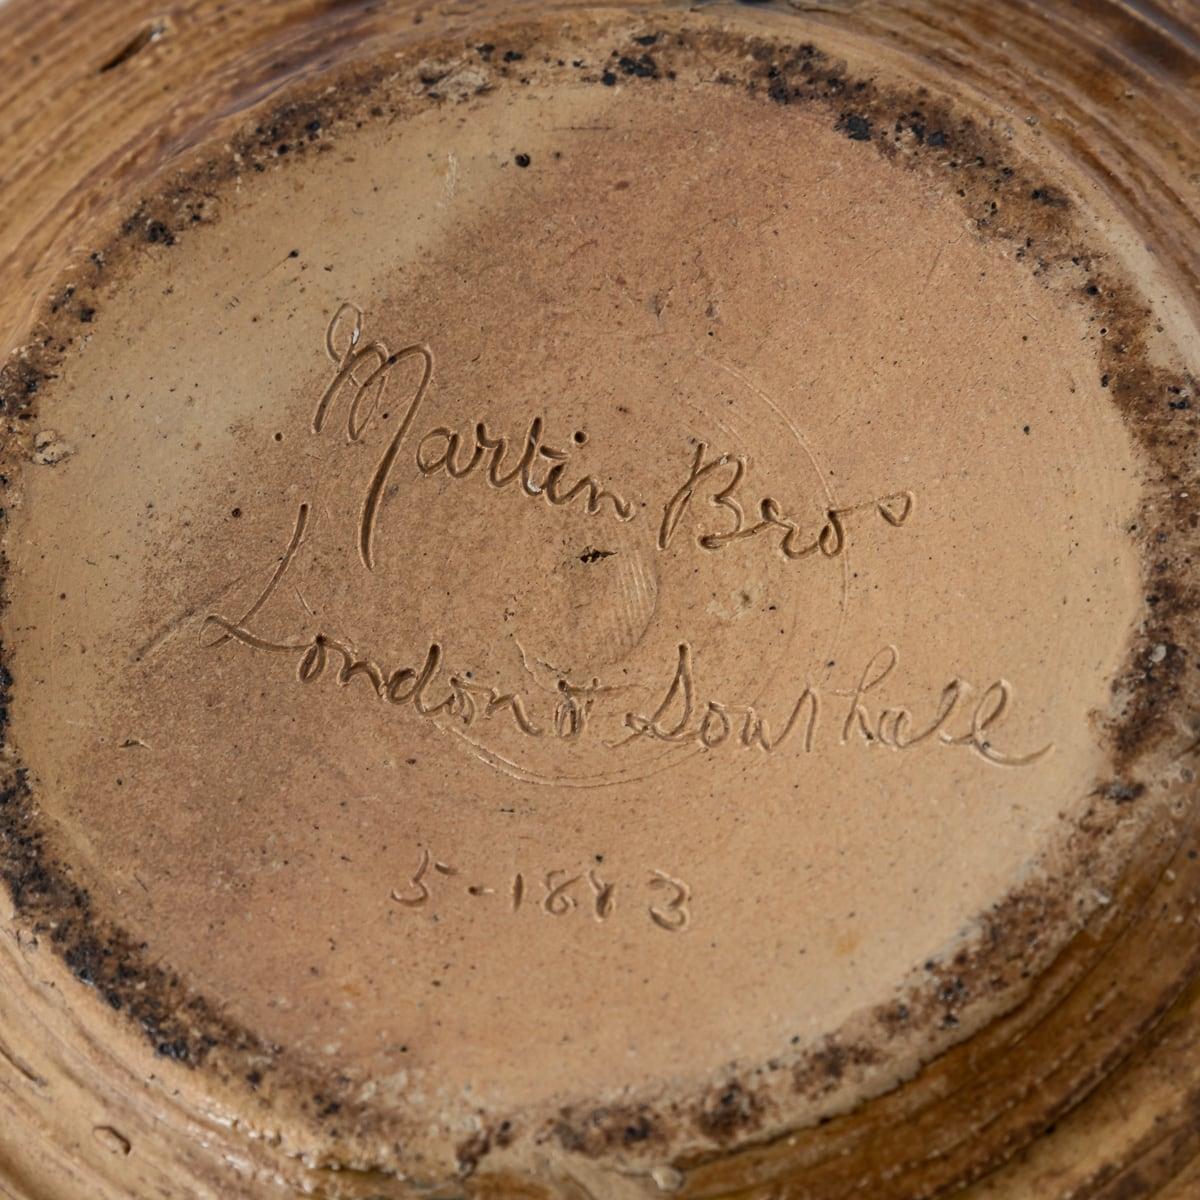 Martin Bros
London & Southall
5-1883